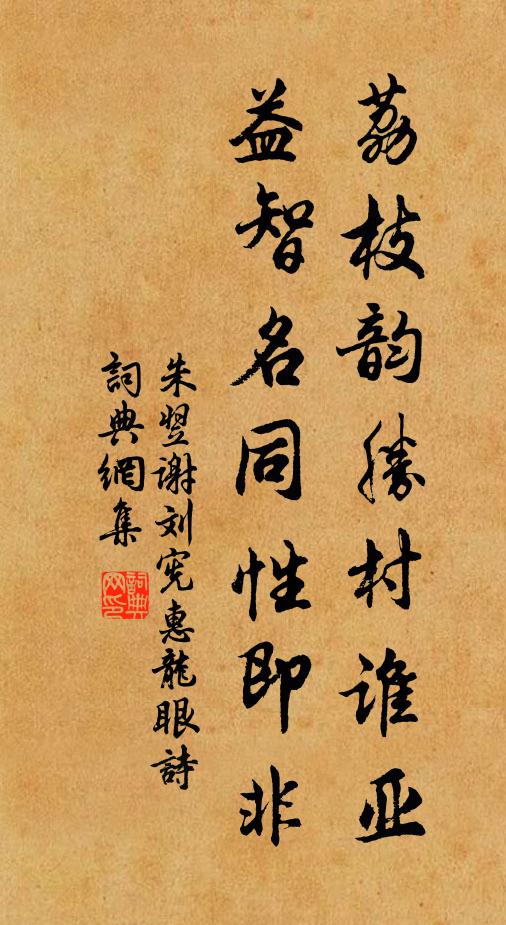 荔枝韵勝村谁亚
益智名同性即非
朱翌谢刘宪惠龍眼詩
詞典網集
詞典网印